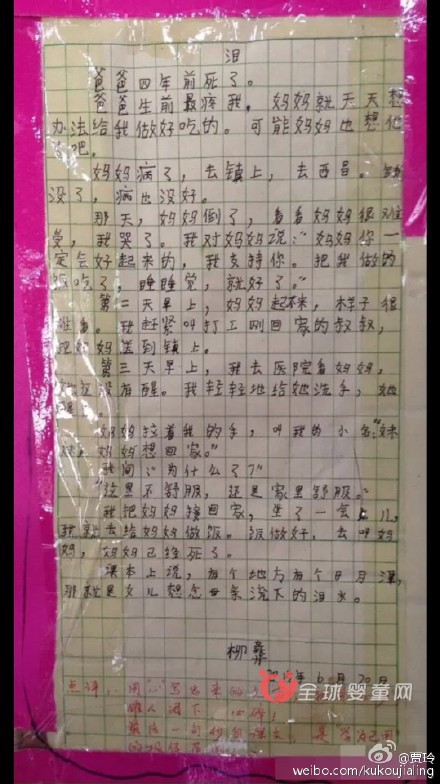 泪
爸爸四年前死了。
爸爸生前最疼我,妈妈就天天想
办法给我做好吃的。可能妈妈也想他
了吧。
妈妈病了,去镇上,去西昌。钱
没了,病也没好。
那天,妈妈倒了,看看妈妈很难
受,我哭了。我对妈妈说:“妈妈你一
定会好起来的,我支持你。把我做的
饭吃了,睡睡觉,就好了。”
第二天早上,妈妈起不来,样子很
难看。我赶紧叫打工刚回家的叔叔,
把妈妈送到镇上。
第三天早上,我去医院看妈妈,
她还没有醒。我轻轻地给她洗手,她
醒了。
妈妈拉着我的手,叫我的小名:“妹
妹,妈妈想回家。”
我问:“为什么了?”
“这里不舒服,还是家里舒服。”
我把妈妈接回家,坐了一会儿,
我就去给妈妈做饭。饭做好,去叫妈
妈,妈妈已经死了。
课本上说,有个地方有个日月潭,
那就是女儿想念母亲流下的泪水。
柳彝
年6月30日
点评:用“心”写出来的
催人泪下
最后一句
全球婴童网
@贾玲
weibo.com/kukoujialing